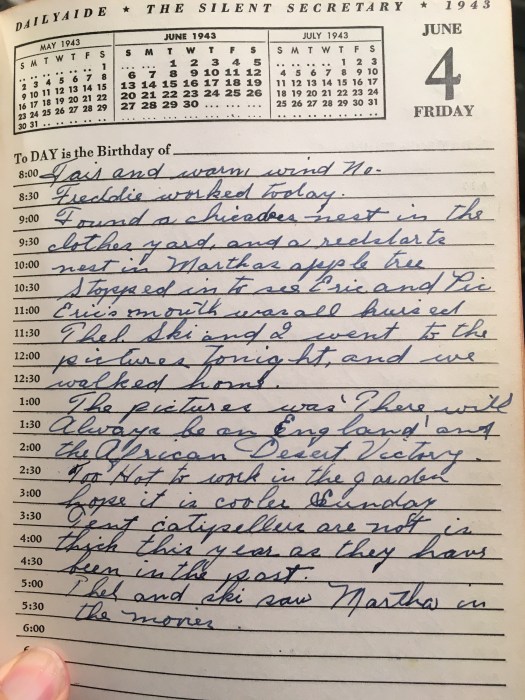 DAILYAIDE ★ THE SILENT SECRETARY ★ 1943
MAY 1943
S M T W T F S
.. .. .. .. .. .. 1
2 3 4 5 6 7 8
9 10 11 12 13 14 15
16 17 18 19 20 21 22
23 24 25 26 27 28 29
30 31 .. .. .. .. ..
JUNE 1943
S M T W T F S
.. .. 1 2 3 4 5
6 7 8 9 10 11 12
13 14 15 16 17 18 19
20 21 22 23 24 25 26
27 28 29 30 ... ... ...
JULY 1943
S M T W T F S
.. .. .. .. 1 2 3
4 5 6 7 8 9 10
11 12 13 14 15 16 17
18 19 20 21 22 23 24
25 26 27 28 29 30 31
JUNE
4
FRIDAY
To DAY is the Birthday of
8:00 Fair and warm, wind No-
8:30 Freddie worked today.
9:00 Found a chicadees nest in the
9:30 clothes yard, and a redstarts
10:00 nest in Marthas apple tree
10:30 Stopped in to see Eric and Pic
11:00 Eric's mouth was all
11:30 Phel. Ski and I went to the
12:00 pictures tonight, and we
12:30 walked home.
1:00 The pictures was 'There will
1:30 Always be an England' and
2:00 the African Desert Victory.
2:30 Too Hot to work in the garden
3:00 hope it is cooler Sunday
3:30 Tent catipellers are not in
4:00 thick this year as they have
4:30 been in the past.
5:00 Phel and ski saw Martha in
5:30 the movies
6:00